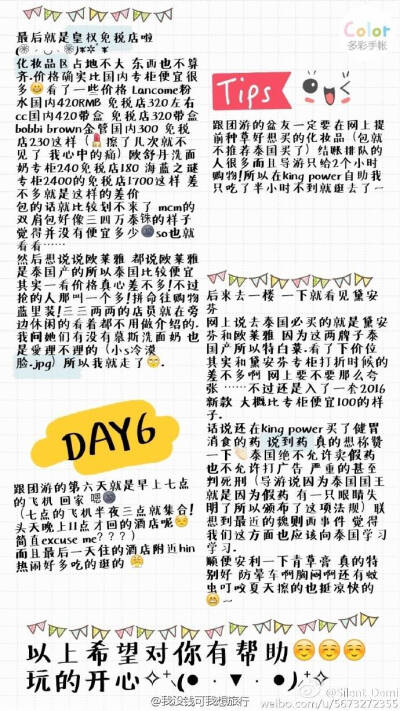 最后就是皇权免税店啦
化妆品区占地不大 东西也不算
齐.价格确实比国内专柜便宜很
多😄看了一些价格 Lancome粉
水国内420RMB 免税店320左右
cc国内420带盒 免税店320带盒
bobbi brown金管国内300 免税
店230这样(💄擦了几次就不
见了 我心中的痛)欧舒丹洗面
奶专柜240免税店180 海蓝之谜
专柜2400的免税店1700这样 差
不多就是这样的差价
包的话就比较划不来了 mcm的
双肩包好像三四万泰铢的样子
觉得并没有便宜多少🌚so也就
看看……
然后想说说欧莱雅 都说欧莱雅
是泰国产的所以泰国比较便宜
其实一看价格真心差不多!不过
抢的人那叫一个多!拼命往购物
蓝里装!三三两两的店员就在旁
边休闲的看着都不用做介绍的.
我问她们有没有慕斯洗面奶 也
是爱理不理的(小s冷漠
脸.jpg)所以我就走了😁.
DAY6
跟团游的第六天就是早上七点
的飞机 回家 嗯🌚
(七点的飞机半夜三点就集合!
头天晚上11点才回的酒店呢😌
简直excuse me???)
而且最后一天住的酒店附近hin
热闹好多吃的逛的
Color
多彩手帐
Tips
跟团游的盆友一定要在网上提
前种草好想买的化妆品(包就
不推荐泰国买了)结账排队的
人很多而且导游只给2个小时
购物!所以在king power自助我
只吃了半小时不到就逛去了一
后来去一楼 一下就看见黛安
芬
网上说去泰国必买的就是黛安
芬和欧莱雅 因为这两牌子泰
国产所以特白菜.看了下价位
其实和黛安芬专柜打折时候的
差不多啊 网上要不要那么夸
张 ……不过还是入了一套2016
新款 大概比专柜便宜100的样
子.
话说还在king power买了健胃
消食的药 说到药 真的想称赞
一下👏泰国绝不允许卖假药
也不允许打广告 严重的甚至
判死刑(导游说因为泰国国王
就是因为假药 有一只眼睛失
明了所以颁布了这项法规)联
想到最近的魏则西事件 觉得
我们这方面也应该向泰国学习
学习.
顺便安利一下青草膏 真的特
别好 防晕车啊胸闷啊还有蚊
虫叮咬夏天擦的也挺凉快的
😁一
以上希望对你有帮助☺☺☺
玩的开心✧⁺(●˙▾˙●)⁺✧
@我没钱可我想旅行
@Silent_Domi
weibo.com/u/5673272355